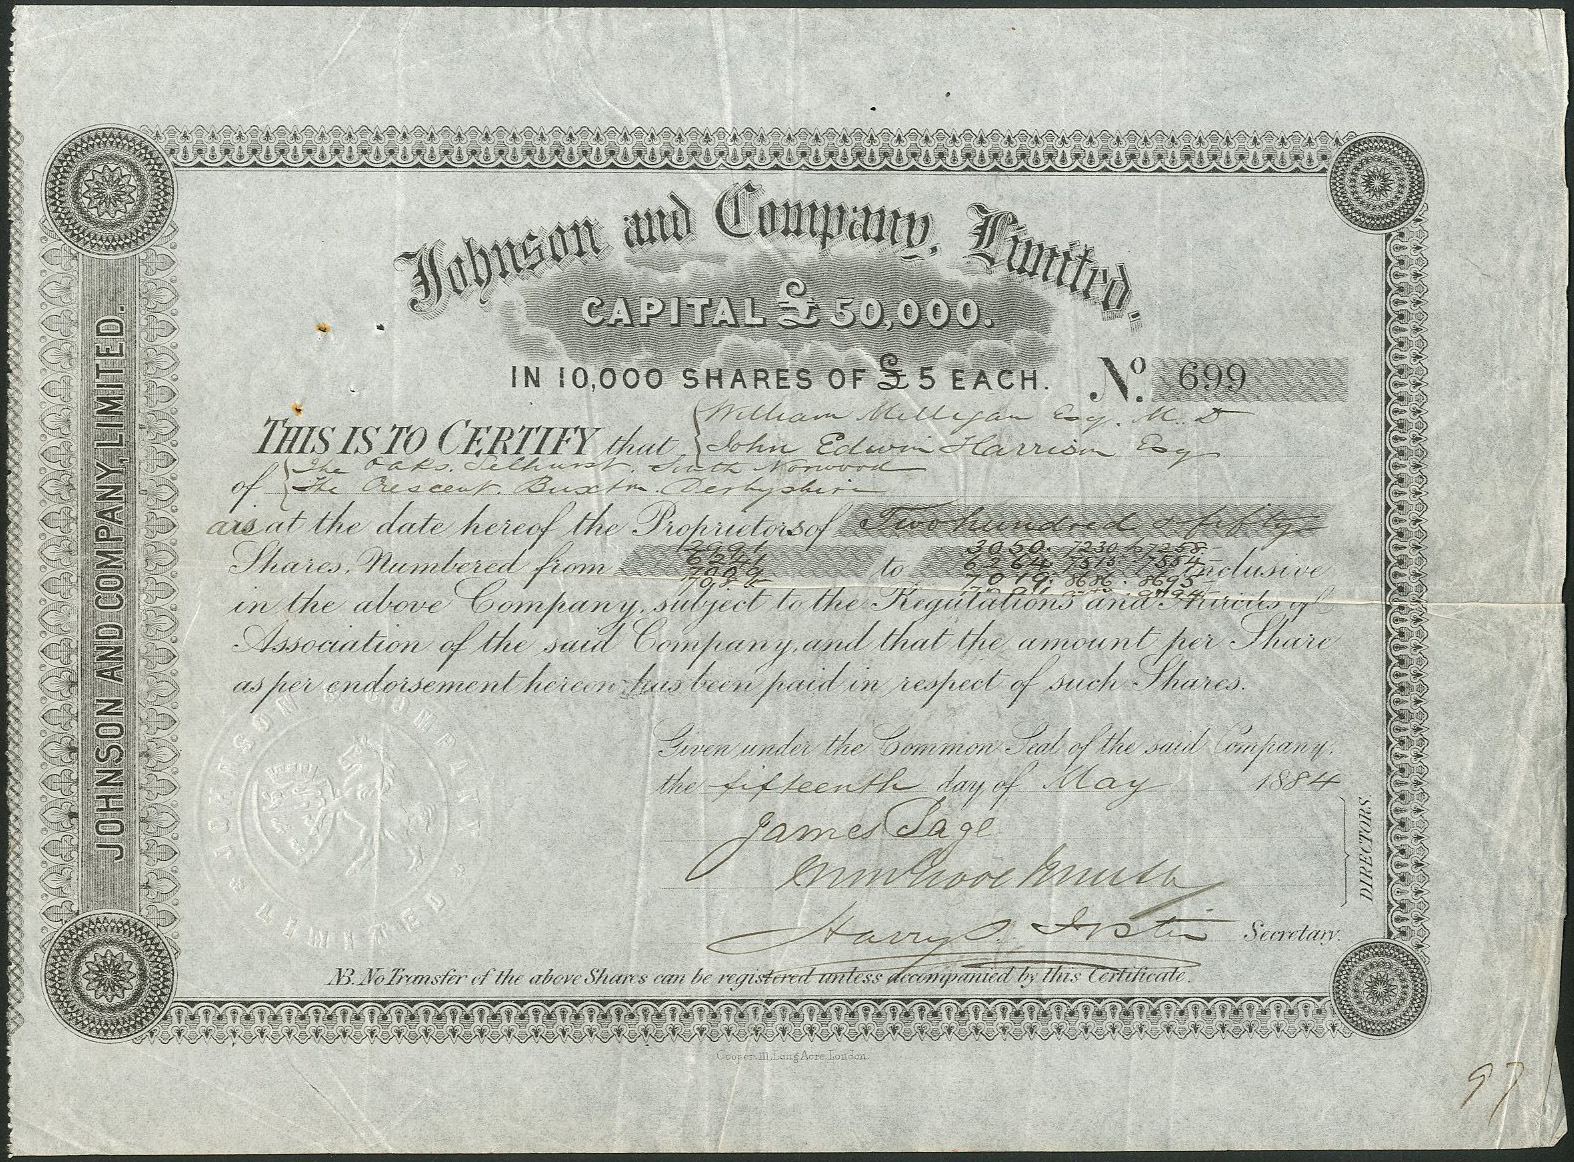 Johnson and Company, Limited.
CAPITAL £50,000.
IN 10,000 SHARES OF £5 EACH.
No. 699
William Milligan Esq. M.D
THIS IS TO CERTIFY that John Edwin Harrison Esq
The Oaks. Selhurst. South Norwood
of The Crescent. Buxton. Derbyshire
are at the date hereof the Proprietors of Two hundred & fifty
3050. 7230 to 7258
Shares, Numbered from to 6264 7515 7554 Inclusive
7019. 8686. 8695
in the above Company, subject to the Regulations and Articles of
Association of the said Company, and that the amount per Share
as per endorsement hereon has been paid in respect of such Shares.
Given under the Common Seal of the said Company,
the fifteenth day of May 1884
James Sage
Harry Secretary.
DIRECTORS.
NB. No Transfer of the above Shares can be registered unless accompanied by this Certificate.
Cooper, 111, Long Acre, London.
JOHNSON AND COMPANY, LIMITED.
JOHNSON & COMPANY LIMITED
97